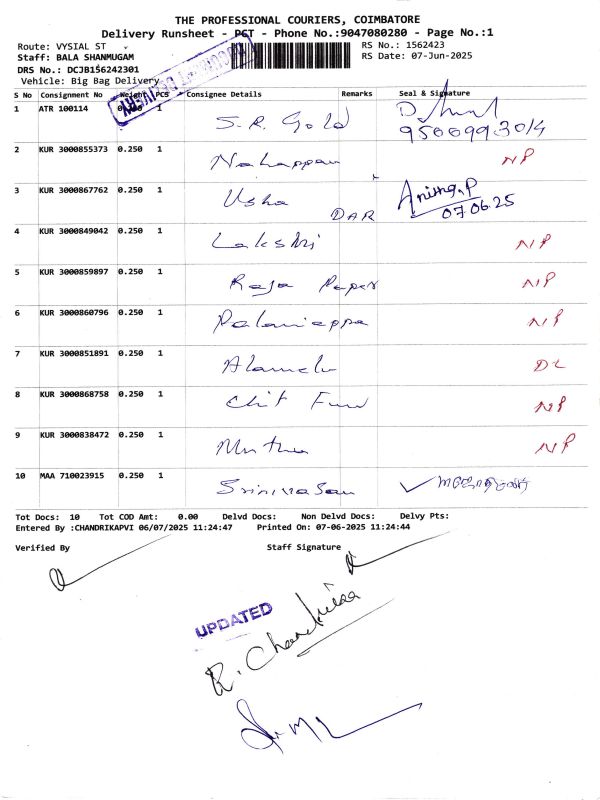 THE PROFESSIONAL COURIERS, COIMBATORE
Delivery Runsheet - PCT - Phone No.:9047080280 - Page No.:1
Route: VYSIAL ST
RS No.: 1562423
Staff: BALA SHANMUGAM
RS Date: 07-Jun-2025
DRS No.: DCJB156242301
Vehicle: Big Bag Delivery
S No Consignment No Weight PCS Consignee Details Remarks Seal & Signature
1 ATR 100114 1 S.R. Gold
2 KUR 3000855373 0.250 1 Nahappan NP
3 KUR 3000867762 0.250 1 Usha DAR Anitha.P
07.06.25
4 KUR 3000849042 0.250 1 NP
5 KUR 3000859897 0.250 1 Raja Paper NP
6 KUR 3000860796 0.250 1 Palaniappa NP
7 KUR 3000851891 0.250 1 Alamelu DL
8 KUR 3000868758 0.250 1 Chit NP
9 KUR 3000838472 0.250 1 Muthu NP
10 MAA 710023915 0.250 1 Srinivasan
Tot Docs: 10 Tot COD Amt: 0.00 Delvd Docs: Non Delvd Docs: Delvy Pts:
Entered By :CHANDRIKAPVI 06/07/2025 11:24:47 Printed On: 07-06-2025 11:24:44
Verified By Staff Signature
UPDATED
R. Chandrika